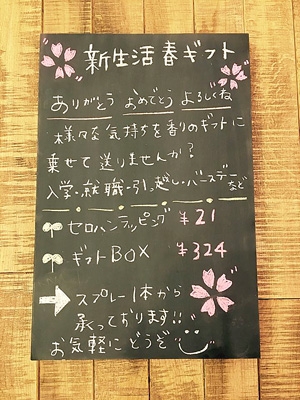 新生活春ギフト
ありがとう おめでとう よろしくね
様々な気持ちを香りのギフトに
乗せて送りませんか?
入学・就職・引っ越し・バースデーなど
セロハンラッピング ¥21
ギフトBOX ¥324
スプレー1本から
承っております!!
お気軽にどうぞ